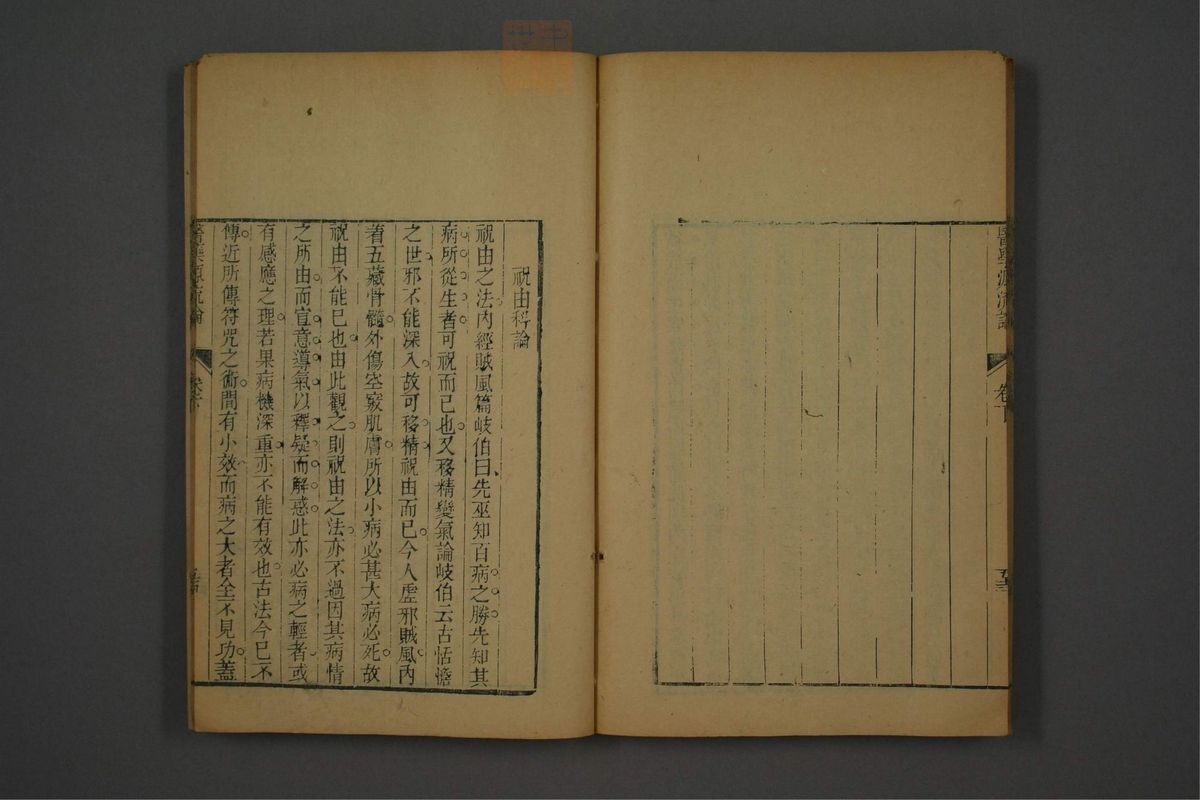 醫學源流論
卷下
五十三
祝由科論
祝由之法內經賊風篇岐伯曰先巫知百病之勝先知其
病所從生者可祝而已也又移精變氣論岐伯云古恬憺
之世邪不能深入故可移精祝由而已今人虛邪賊風內
著五藏骨髓外傷空竅肌膚所以小病必甚大病必死故
祝由不能已也由此觀之則祝由之法亦不過因其病情
之所由而宣意導氣以釋疑而解惑此亦必病之輕者或
有感應之理若果病機深重亦不能有效也古法今已不
傳近所傳符咒之術間有小效而病之大者全不見功蓋
醫學源流論